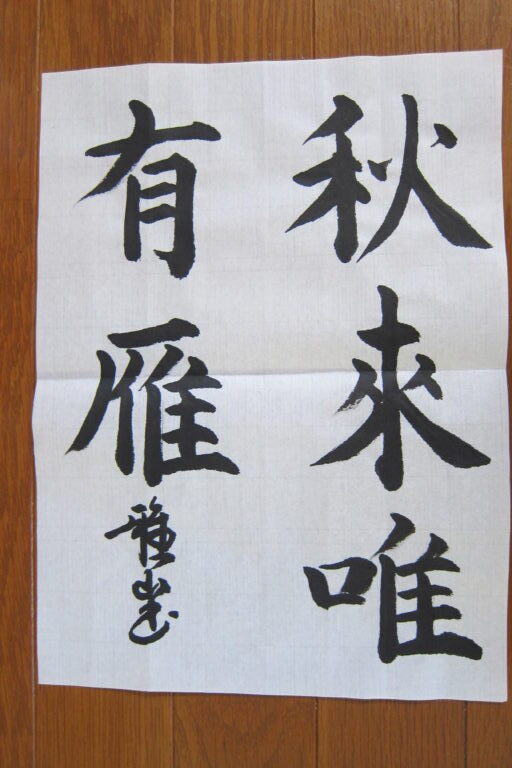 秋來唯
有雁